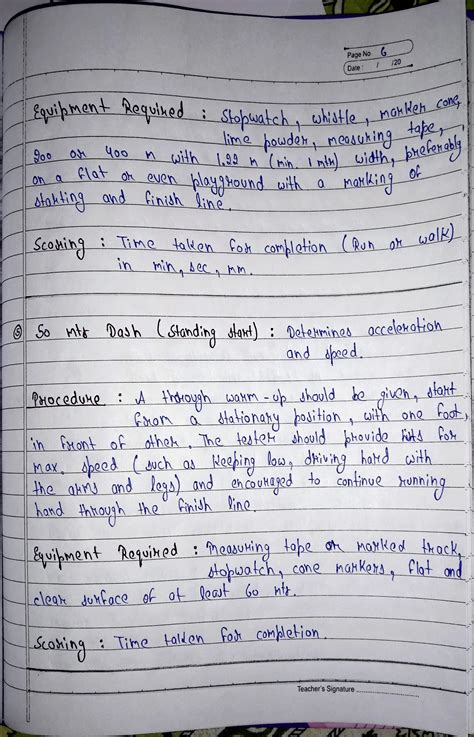 Page No. 6
Date : / /20
Equipment Required : Stopwatch, whistle, marker cone,
lime powder, measuring tape,
200 or 400 m with 1.22 m (min 1 mtr) width, preferably
on a flat or even playground with a marking of
starting and finish line.
Scoring : Time taken for completion (Run or walk)
in min, sec, mm.
50 mtr Dash (Standing start) : Determines acceleration
and speed.
Procedure : A thorough warm-up should be given, start
from a stationary position, with one foot,
in front of other. The tester should provide hints for
max. speed (such as keeping low, driving hard with
the arms and legs) and encouraged to continue running
hard through the finish line.
Equipment Required : Measuring tape or marked track,
stopwatch, cone markers, flat and
clear surface of at least 60 mtr.
Scoring : Time taken for completion.
Teacher's Signature